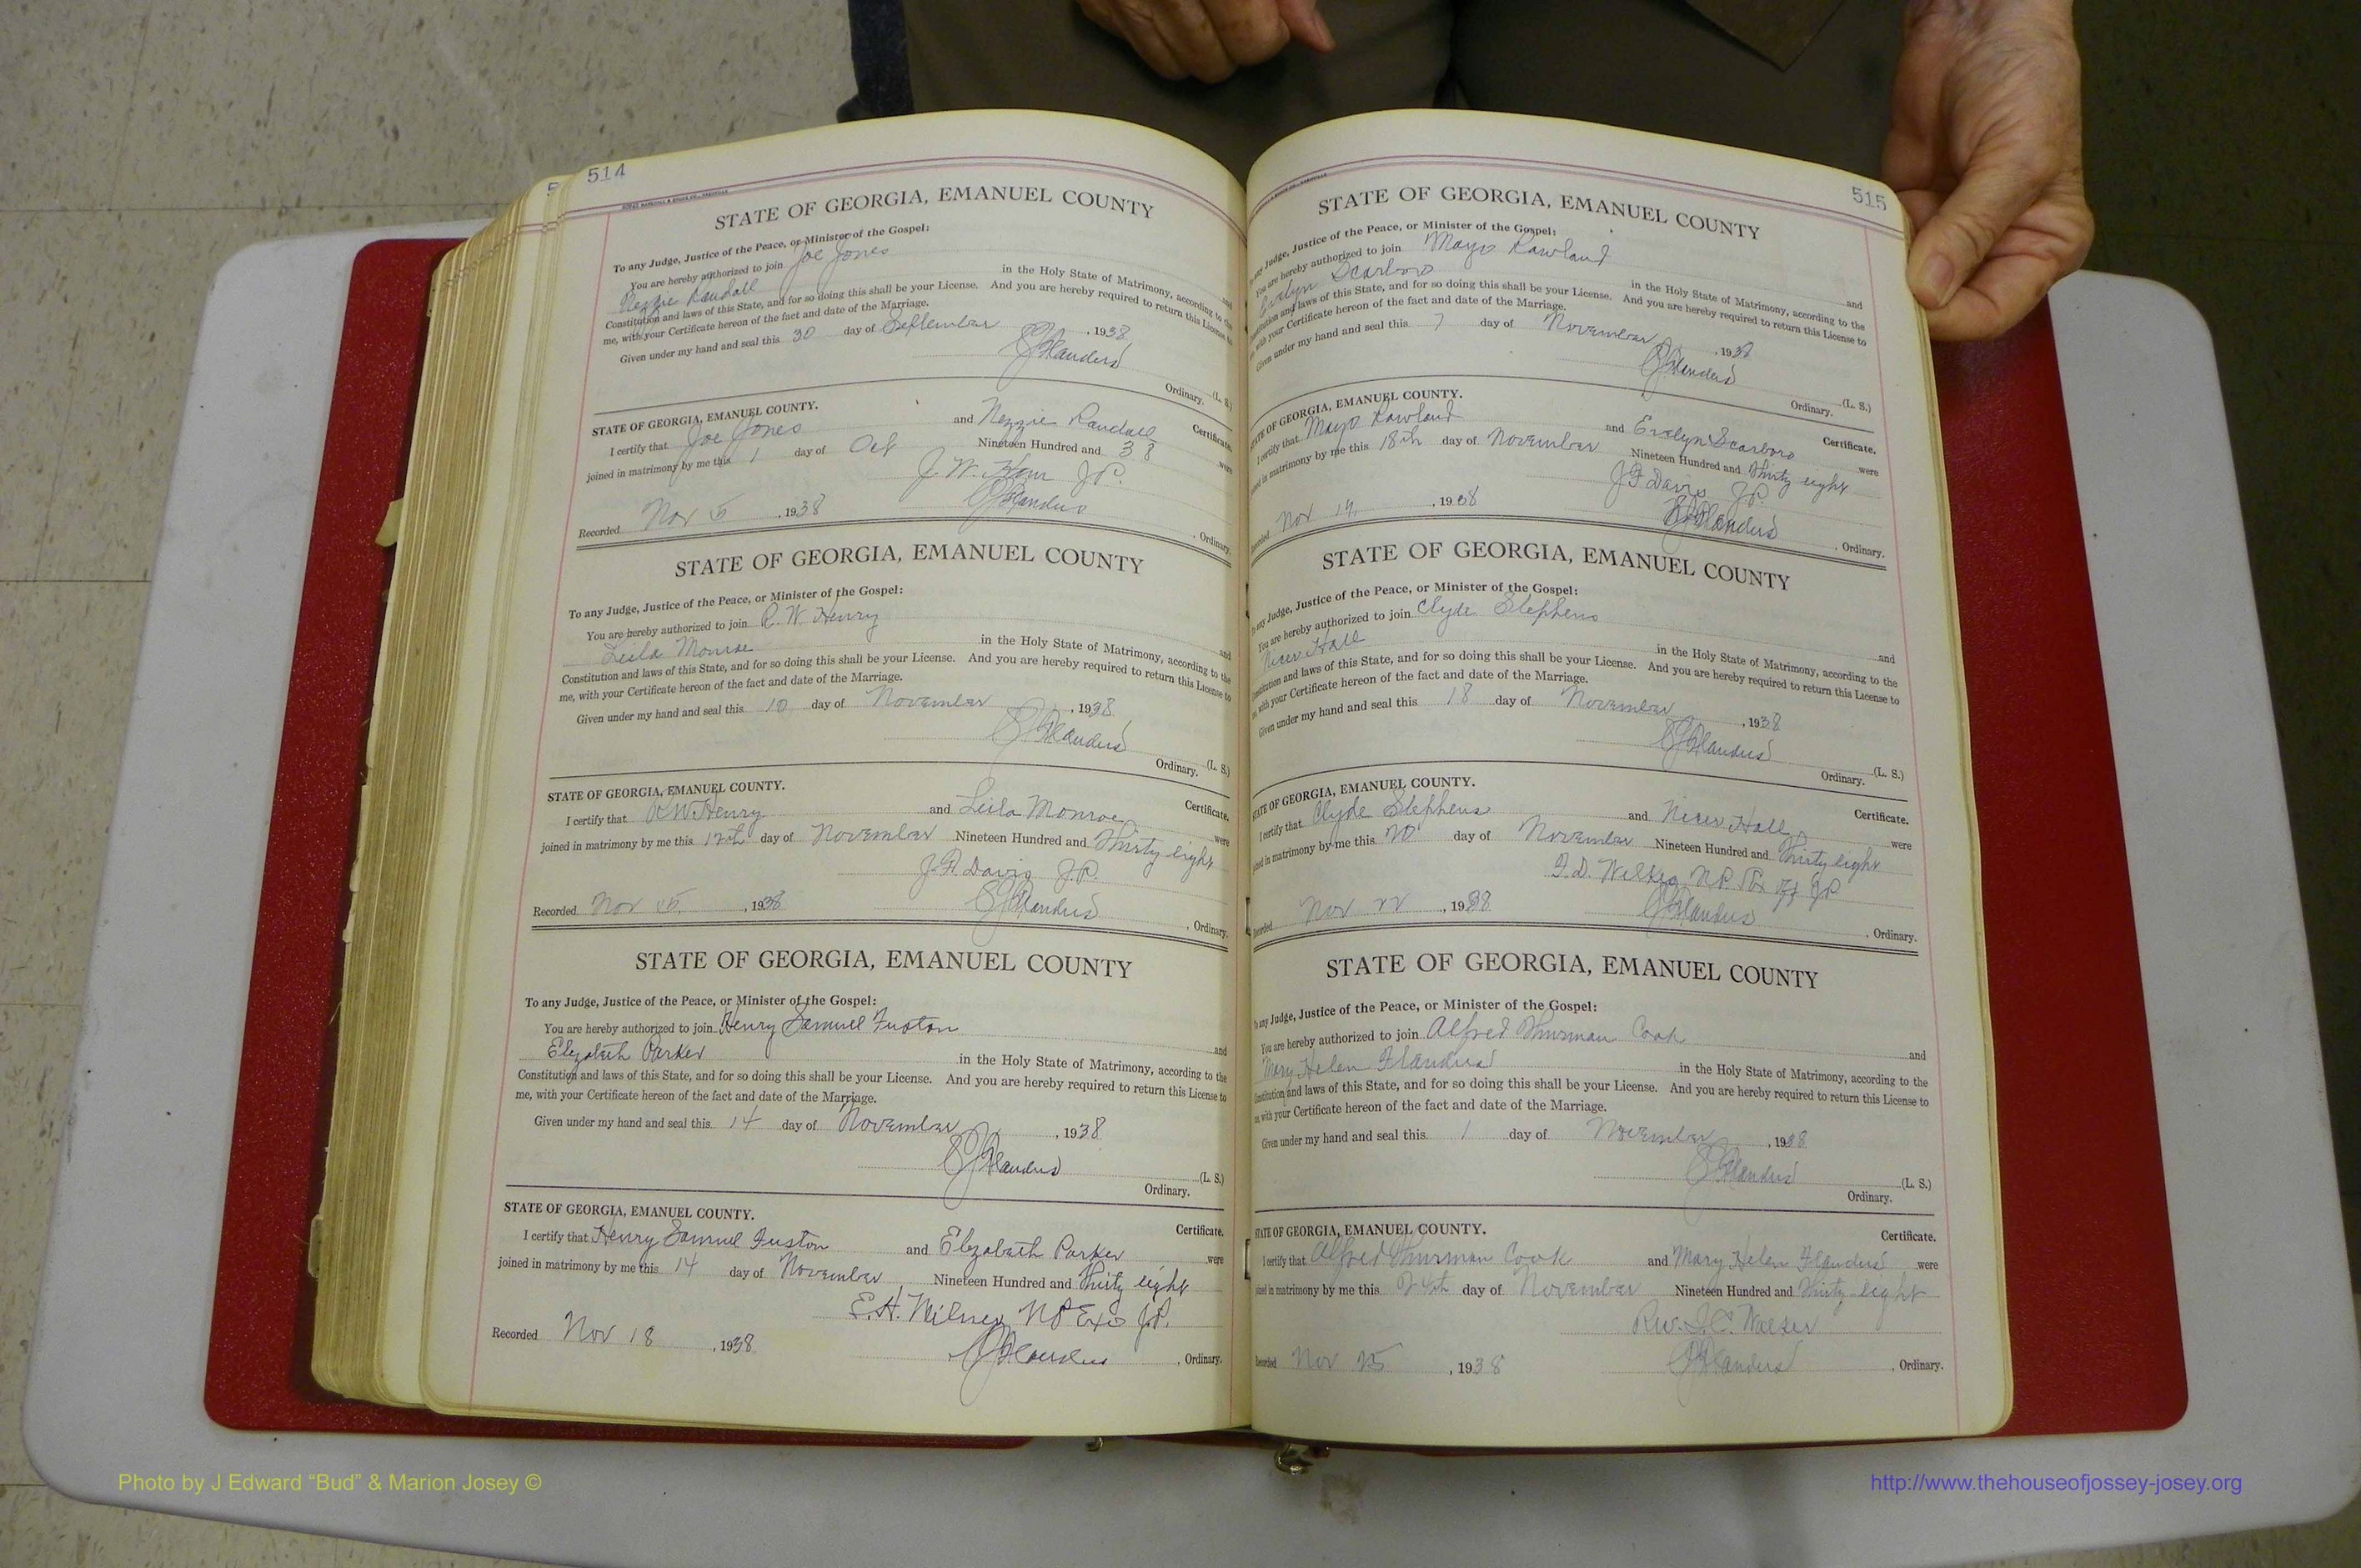 514
STATE OF GEORGIA, EMANUEL COUNTY
To any Judge, Justice of the Peace, or Minister of the Gospel:
You are hereby authorized to join Joe Jones and
Nezzie Randall in the Holy State of Matrimony, according to the
Constitution and laws of this State, and for so doing this shall be your License. And you are hereby required to return this License to
me, with your Certificate hereon of the fact and date of the Marriage.
Given under my hand and seal this 30 day of September, 1938
Flanders
Ordinary. (L. S.)
STATE OF GEORGIA, EMANUEL COUNTY. Certificate.
I certify that Joe Jones and Nezzie Randall were
joined in matrimony by me this 1 day of Oct Nineteen Hundred and 38
J. W. J.P.
Recorded Nov 5, 1938 Flanders, Ordinary.
STATE OF GEORGIA, EMANUEL COUNTY
To any Judge, Justice of the Peace, or Minister of the Gospel:
You are hereby authorized to join R. W. Henry and
Leila Monroe in the Holy State of Matrimony, according to the
Constitution and laws of this State, and for so doing this shall be your License. And you are hereby required to return this License to
me, with your Certificate hereon of the fact and date of the Marriage.
Given under my hand and seal this 10 day of November, 1938
Flanders
Ordinary. (L. S.)
STATE OF GEORGIA, EMANUEL COUNTY. Certificate.
I certify that R W Henry and Leila Monroe were
joined in matrimony by me this 12th day of November Nineteen Hundred and Thirty eight
J. F. Davis J.P.
Recorded Nov 15, 1938 Flanders, Ordinary.
STATE OF GEORGIA, EMANUEL COUNTY
To any Judge, Justice of the Peace, or Minister of the Gospel:
You are hereby authorized to join Henry Samuel Fuston and
Elizabeth Parker in the Holy State of Matrimony, according to the
Constitution and laws of this State, and for so doing this shall be your License. And you are hereby required to return this License to
me, with your Certificate hereon of the fact and date of the Marriage.
Given under my hand and seal this 14 day of November, 1938
Flanders
Ordinary. (L. S.)
STATE OF GEORGIA, EMANUEL COUNTY. Certificate.
I certify that Henry Samuel Fuston and Elizabeth Parker were
joined in matrimony by me this 14 day of November Nineteen Hundred and Thirty eight
E. H. Milner NP Exo J.P.
Recorded Nov 18, 1938 Flanders, Ordinary.
515
STATE OF GEORGIA, EMANUEL COUNTY
To any Judge, Justice of the Peace, or Minister of the Gospel:
You are hereby authorized to join Mayo Rowland and
Evelyn Scarboro in the Holy State of Matrimony, according to the
Constitution and laws of this State, and for so doing this shall be your License. And you are hereby required to return this License to
me, with your Certificate hereon of the fact and date of the Marriage.
Given under my hand and seal this 7 day of November, 1938
Flanders
Ordinary. (L. S.)
STATE OF GEORGIA, EMANUEL COUNTY. Certificate.
I certify that Mayo Rowland and Evelyn Scarboro were
joined in matrimony by me this 18th day of November Nineteen Hundred and Thirty eight
J F Davis J.P.
Recorded Nov 19, 1938 Flanders, Ordinary.
STATE OF GEORGIA, EMANUEL COUNTY
To any Judge, Justice of the Peace, or Minister of the Gospel:
You are hereby authorized to join Clyde Stephens and
Hall in the Holy State of Matrimony, according to the
Constitution and laws of this State, and for so doing this shall be your License. And you are hereby required to return this License to
me, with your Certificate hereon of the fact and date of the Marriage.
Given under my hand and seal this 18 day of November, 1938
Flanders
Ordinary. (L. S.)
STATE OF GEORGIA, EMANUEL COUNTY. Certificate.
I certify that Clyde Stephens and Hall were
joined in matrimony by me this 20 day of November Nineteen Hundred and Thirty eight
N.P. JP
Recorded Nov 22, 1938 Flanders, Ordinary.
STATE OF GEORGIA, EMANUEL COUNTY
To any Judge, Justice of the Peace, or Minister of the Gospel:
You are hereby authorized to join Alfred Thurman Cook and
Mary Helen Flanders in the Holy State of Matrimony, according to the
Constitution and laws of this State, and for so doing this shall be your License. And you are hereby required to return this License to
me, with your Certificate hereon of the fact and date of the Marriage.
Given under my hand and seal this 1 day of November, 1938
Flanders
Ordinary. (L. S.)
STATE OF GEORGIA, EMANUEL COUNTY. Certificate.
I certify that Alfred Thurman Cook and Mary Helen Flanders were
joined in matrimony by me this 24th day of November Nineteen Hundred and Thirty-eight
Rev. J. C.
Recorded Nov 25, 1938 Flanders, Ordinary.
Photo by J Edward “Bud” & Marion Josey ©
http://www.thehouseofjossey-josey.org